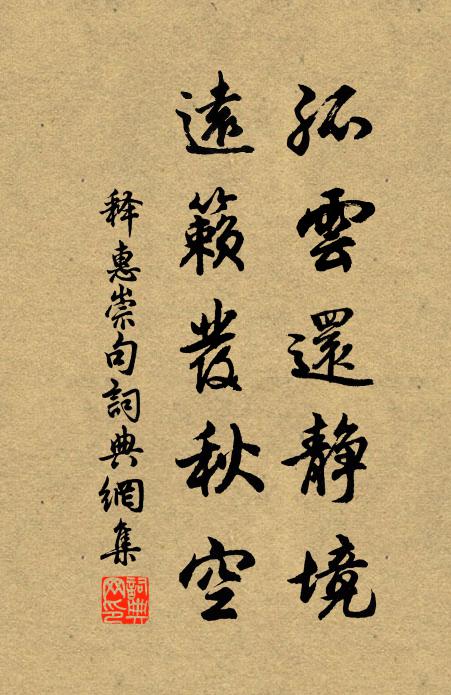 孤雲還静境
遠籟發秋空
释惠崇句詞典網集
詞典网印